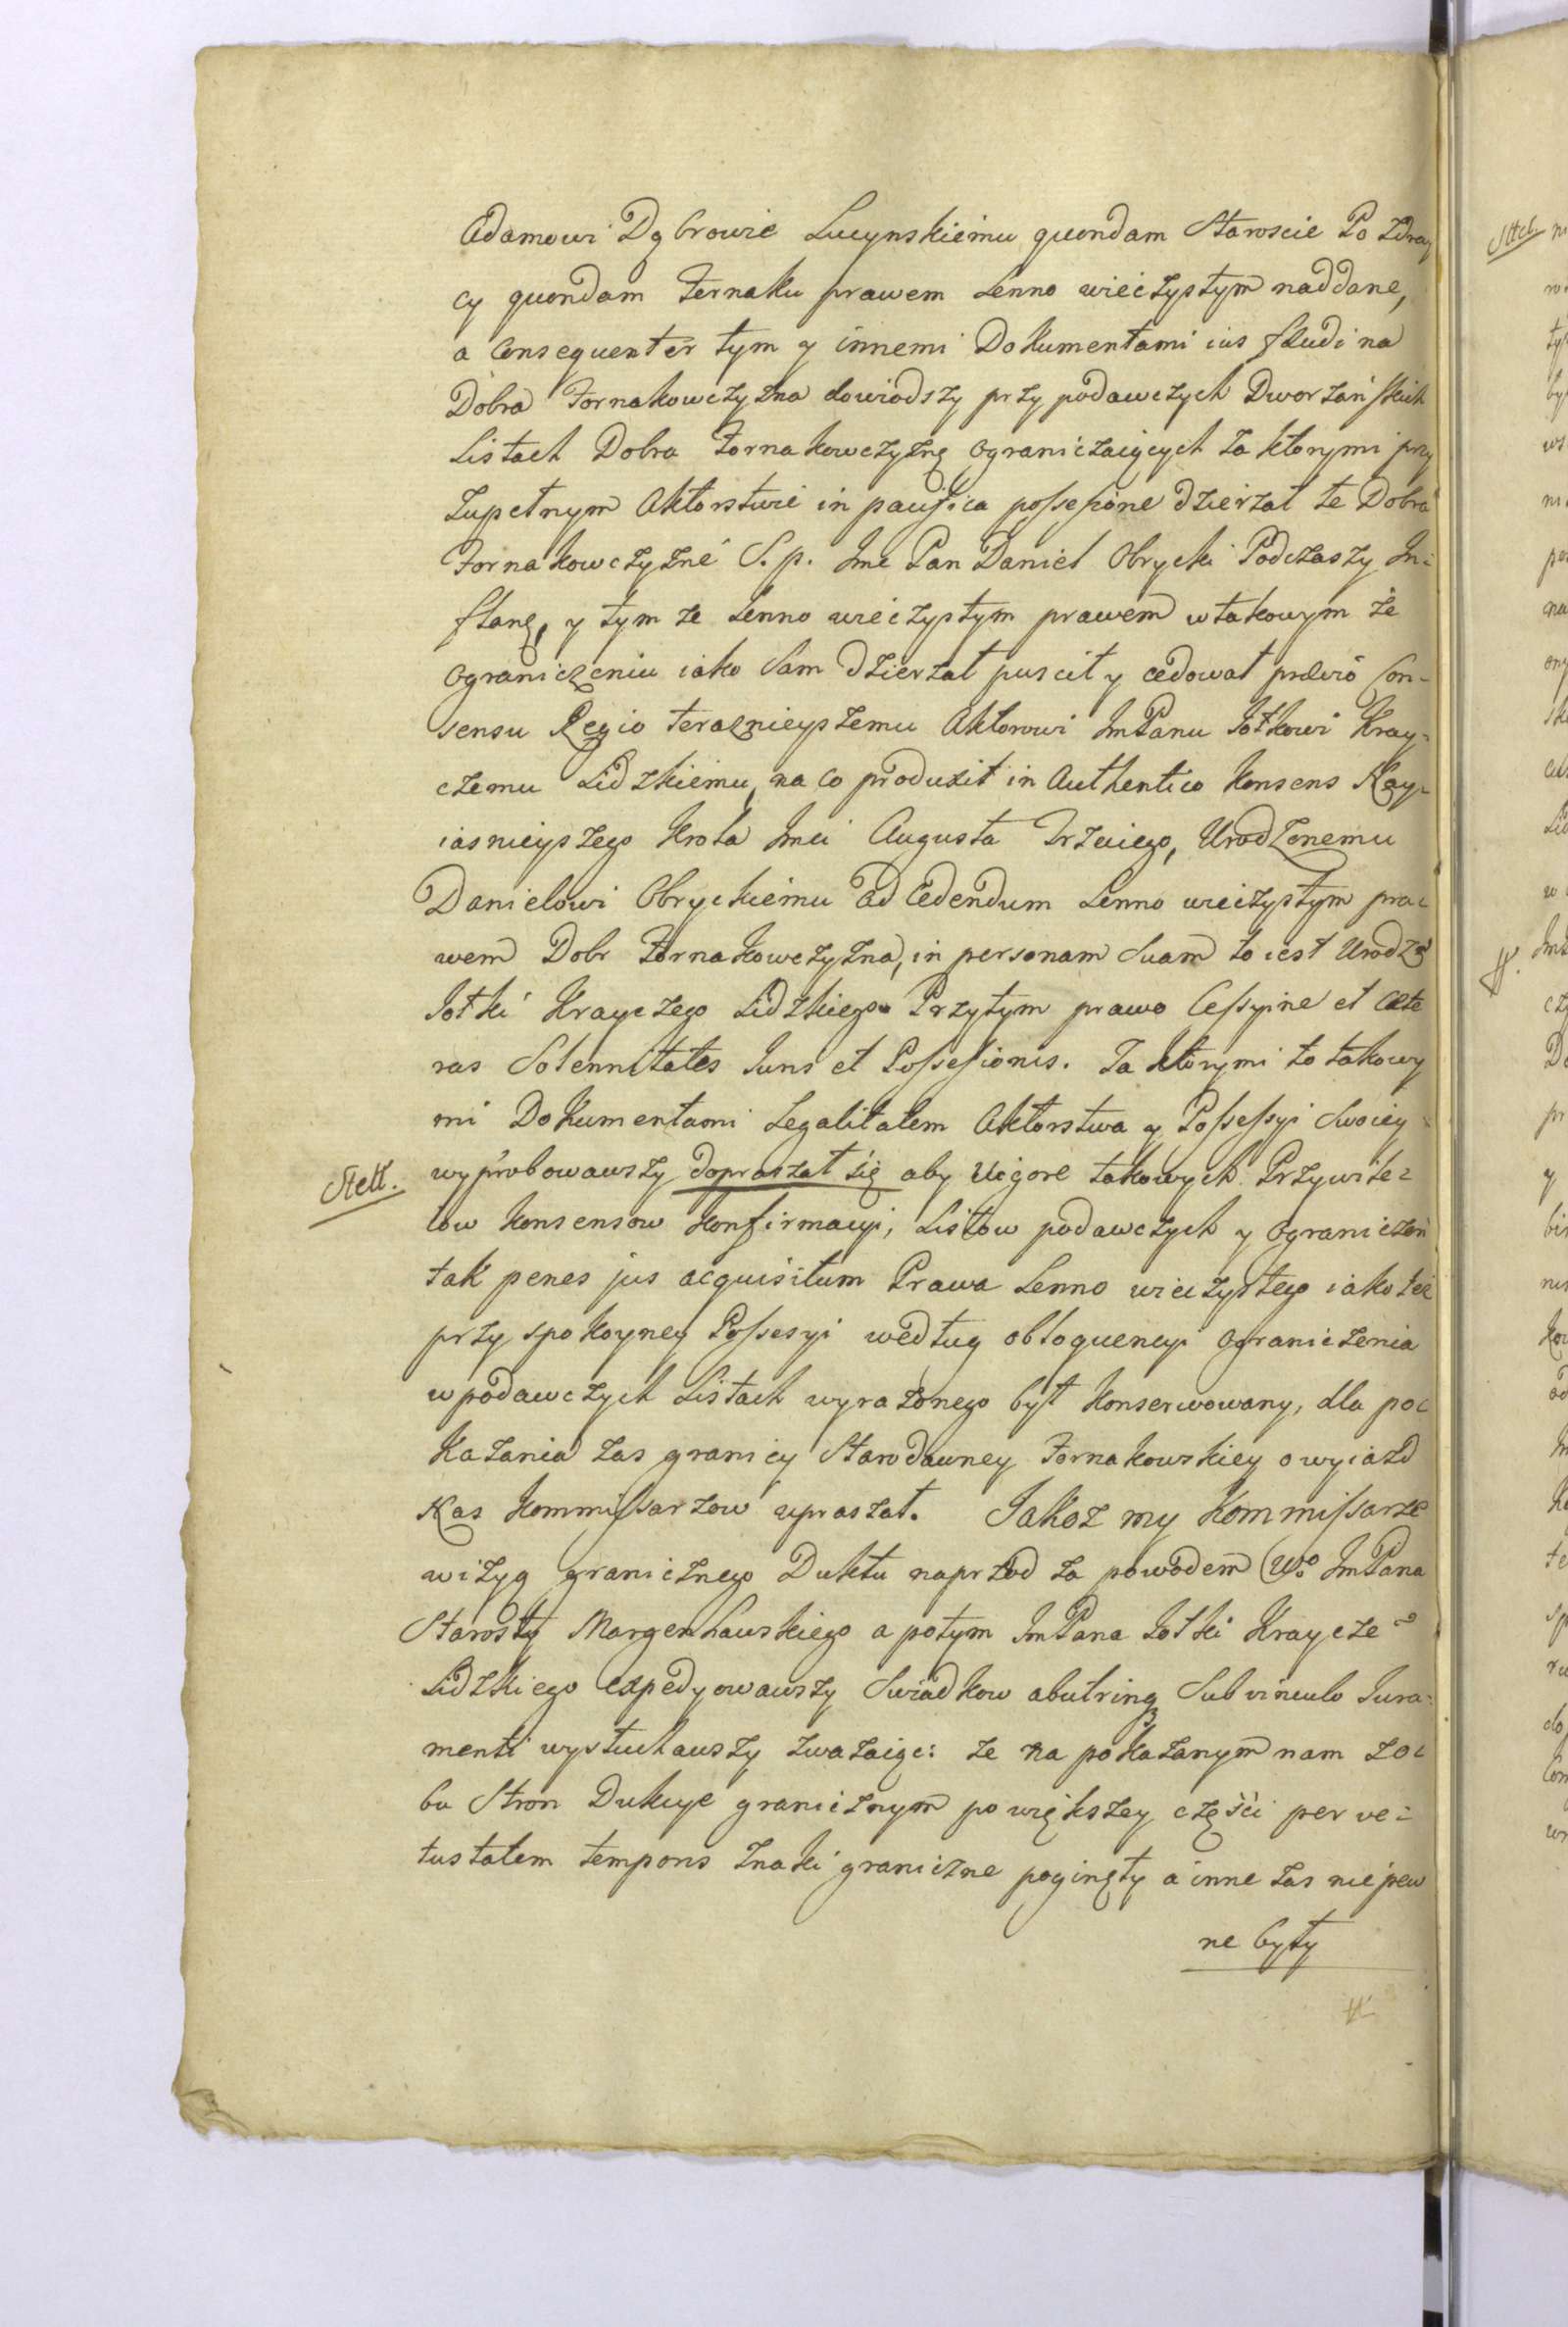 Adamowi Dąbrowie Lucynskiemu quondam Staroscie Po Zdray
cy quondam Żernaku prawem Lenno wieczystym naddane,
a Consequenter tym y innemi Dokumentami ius feudi na
Dobra Żornakowczyzna dowiodszy przy podawczych Dworzańskich
Listach Dobra Żornakowczyznę ograniczaiących za ktorymi przy
Zupełnym Aktorstwie in pacifica possesione dzierzał te Dobra
Żornakowczyzne S. p. Jmc Pan Daniel Obrycki Podczaszy In:
flanc, y tym ze Lenno wieczystym prawem w takowym że
ograniczeniu iako Sam dzierzał puscił y cedował prævio Con-
sensu Regio teraznieyszemu Aktorowi ImPanu Jotkowi Kray-
czemu Lidzkiemu, na co produxit in Authentico Konsens Nay-
iasnieyszego Krola Jmci Augusta Trzeciego, Urodzonemu
Danielowi Obryckiemu Ad Cedendum Lenno wieczystym pra:
wem Dobr Żornakowczyzna, in personam Suam to iest Urodz
Jotki Krayczego Lidzkiego Przytym prawo Cessyine et Cæte
ras Solennitates Juris et Possesionis. Za ktorymi to takowy
mi Dokumentami Legalitatem Aktorstwa y Possessyi Swoiey
wyprobowawszy dopraszał się aby Vigore takowych Przywile:
low Konsensow Konfirmacyi, Listow podawczych y Ograniczen
tak penes jus acquisitum Prawa Lenno wieczystego iako też
przy spokoyney Possesyi według obloquencyi Ograniczenia
w podawczych Listach wyrazonego był Konserwowany, dla po:
Kazania zas granicy Starodawney Żornakowskiey o wyiazd
Nas Kommissarzow upraszał. Jakoz my Kommissarze
wizyą granicznego Duktu naprzod za powodem Wo ImPana
Starosty Margenhauskiego a potym ImPana Jotki Kraycze
Lidzkiego expedyowawszy Swiadkow abutrinq Sub vinculo Jura:
menti wysłuchawszy zwazaiąc: ze na pokazanym nam zo:
bu Stron Dukcye granicznym powiększey części per ve:
tustatem temporis Znaki graniczne poginęły a inne zas niepew
ne były